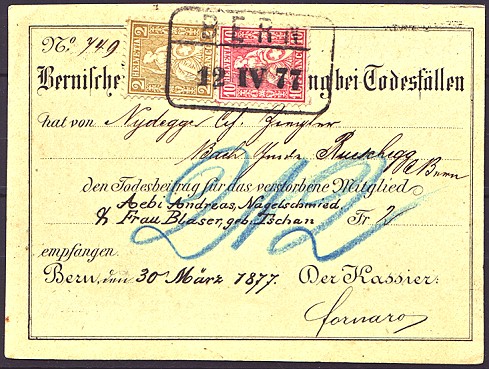 No. 749
BERN
12 IV 77
2 HELVETIA 2
FRANCO
10 HELVETIA 10
FRANCO
Bernische ng bei Todesfällen
hat von Nydegger Ch.
Rüschegg Bern
den Todesbeitrag für das verstorbene Mitglied
Aebi Andreas, Nagelschmied,
& Frau Blaser, geb. Tschan Fr 2
212
empfangen.
Bern, den 30 März 1877. Der Kassier:
fornaro